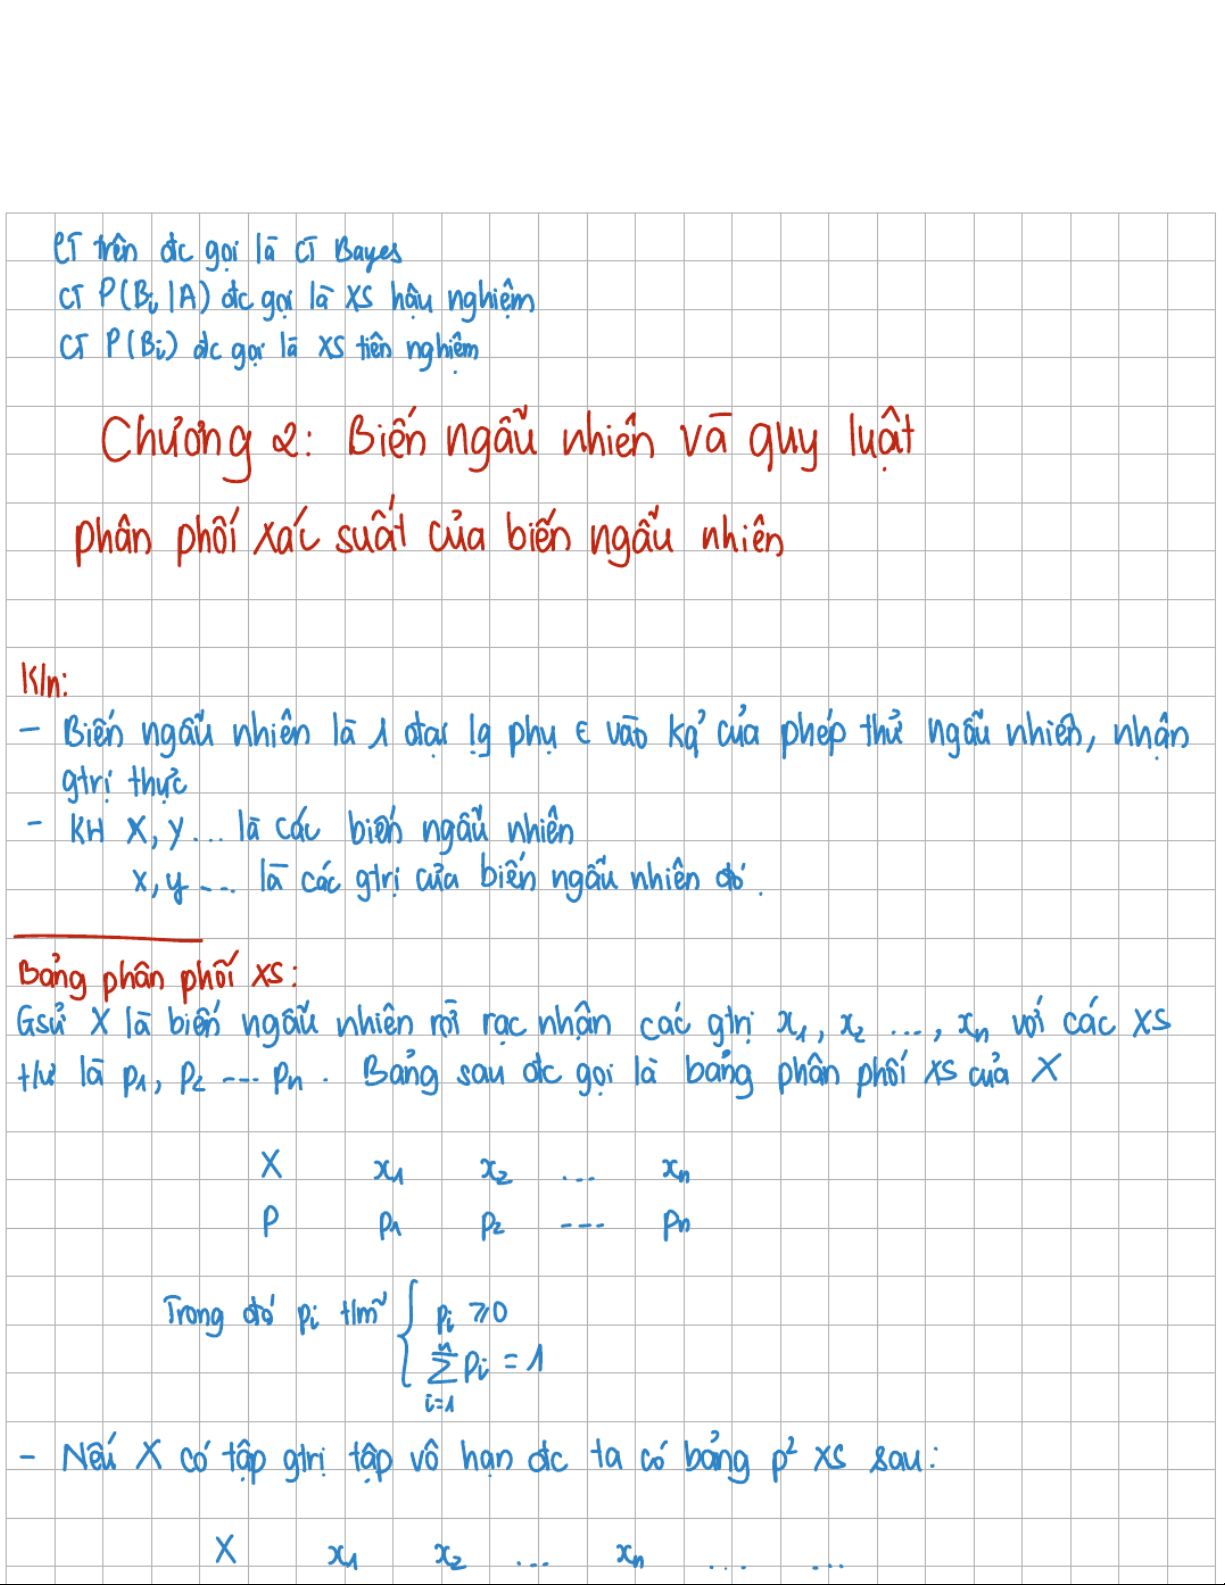 CT trên đc gọi là CT Bayes
CT P(Bi|A) đc gọi là XS hậu nghiệm
CT P(Bi) đc gọi là XS tiên nghiệm
Chương 2: Biến ngẫu nhiên và quy luật
phân phối xác suất của biến ngẫu nhiên
K/n:
- Biến ngẫu nhiên là 1 đại lg phụ ∈ vào kq' của phép thử ngẫu nhiên, nhận
gtrị thực
- KH X, Y... là các biến ngẫu nhiên
x, y ... là các gtrị của biến ngẫu nhiên đó.
Bảng phân phối XS:
Gsử X là biến ngẫu nhiên rời rạc nhận các gtrị x₁, x₂ ..., xₙ với các XS
t/ư là p₁, p₂ ... pₙ. Bảng sau đc gọi là bảng phân phối XS của X
X x₁ x₂ ... xₙ
P p₁ p₂ ... pₙ
Trong đó pᵢ t/mã { pᵢ ≥ 0
n
∑ pᵢ = 1
i=1
- Nếu X có tập gtrị tập vô hạn đc ta có bảng p² XS sau:
X x₁ x₂ ... xₙ ... ...